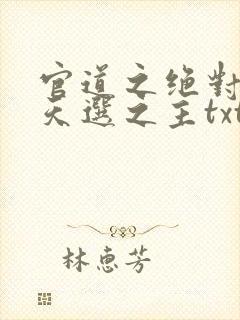 官道之绝对
天選之主txt
林惠芳